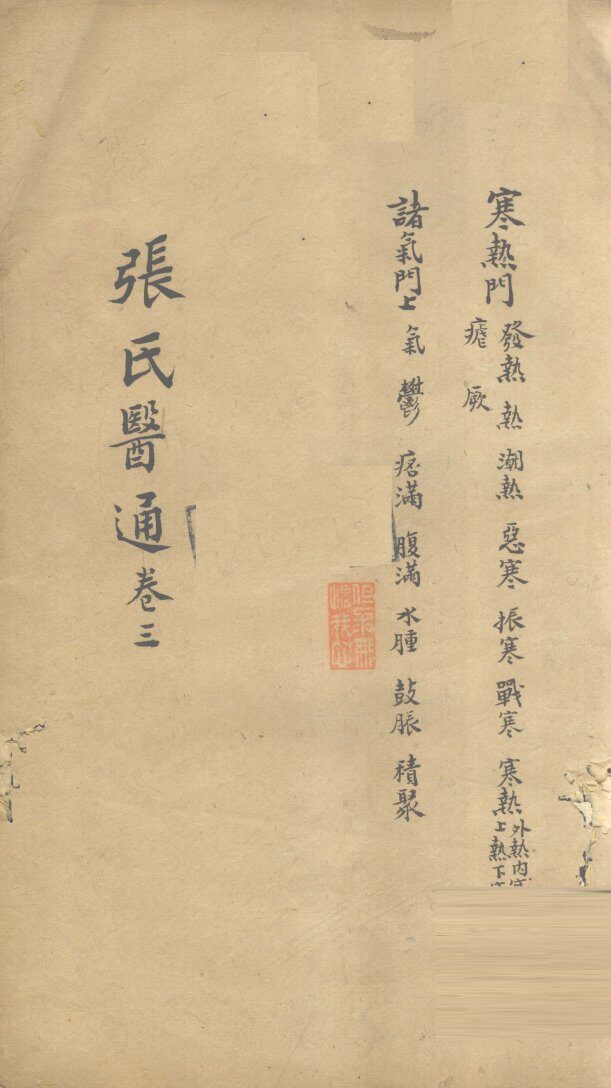 寒熱門 發熱 熱 潮熱 惡寒 振寒 戰寒 寒熱
外熱內寒
上熱下
瘧 厥
諸氣門上 氣 鬱 痞滿 腹滿 水腫 鼓脹 積聚
但求無
愧我心
張氏醫通卷三